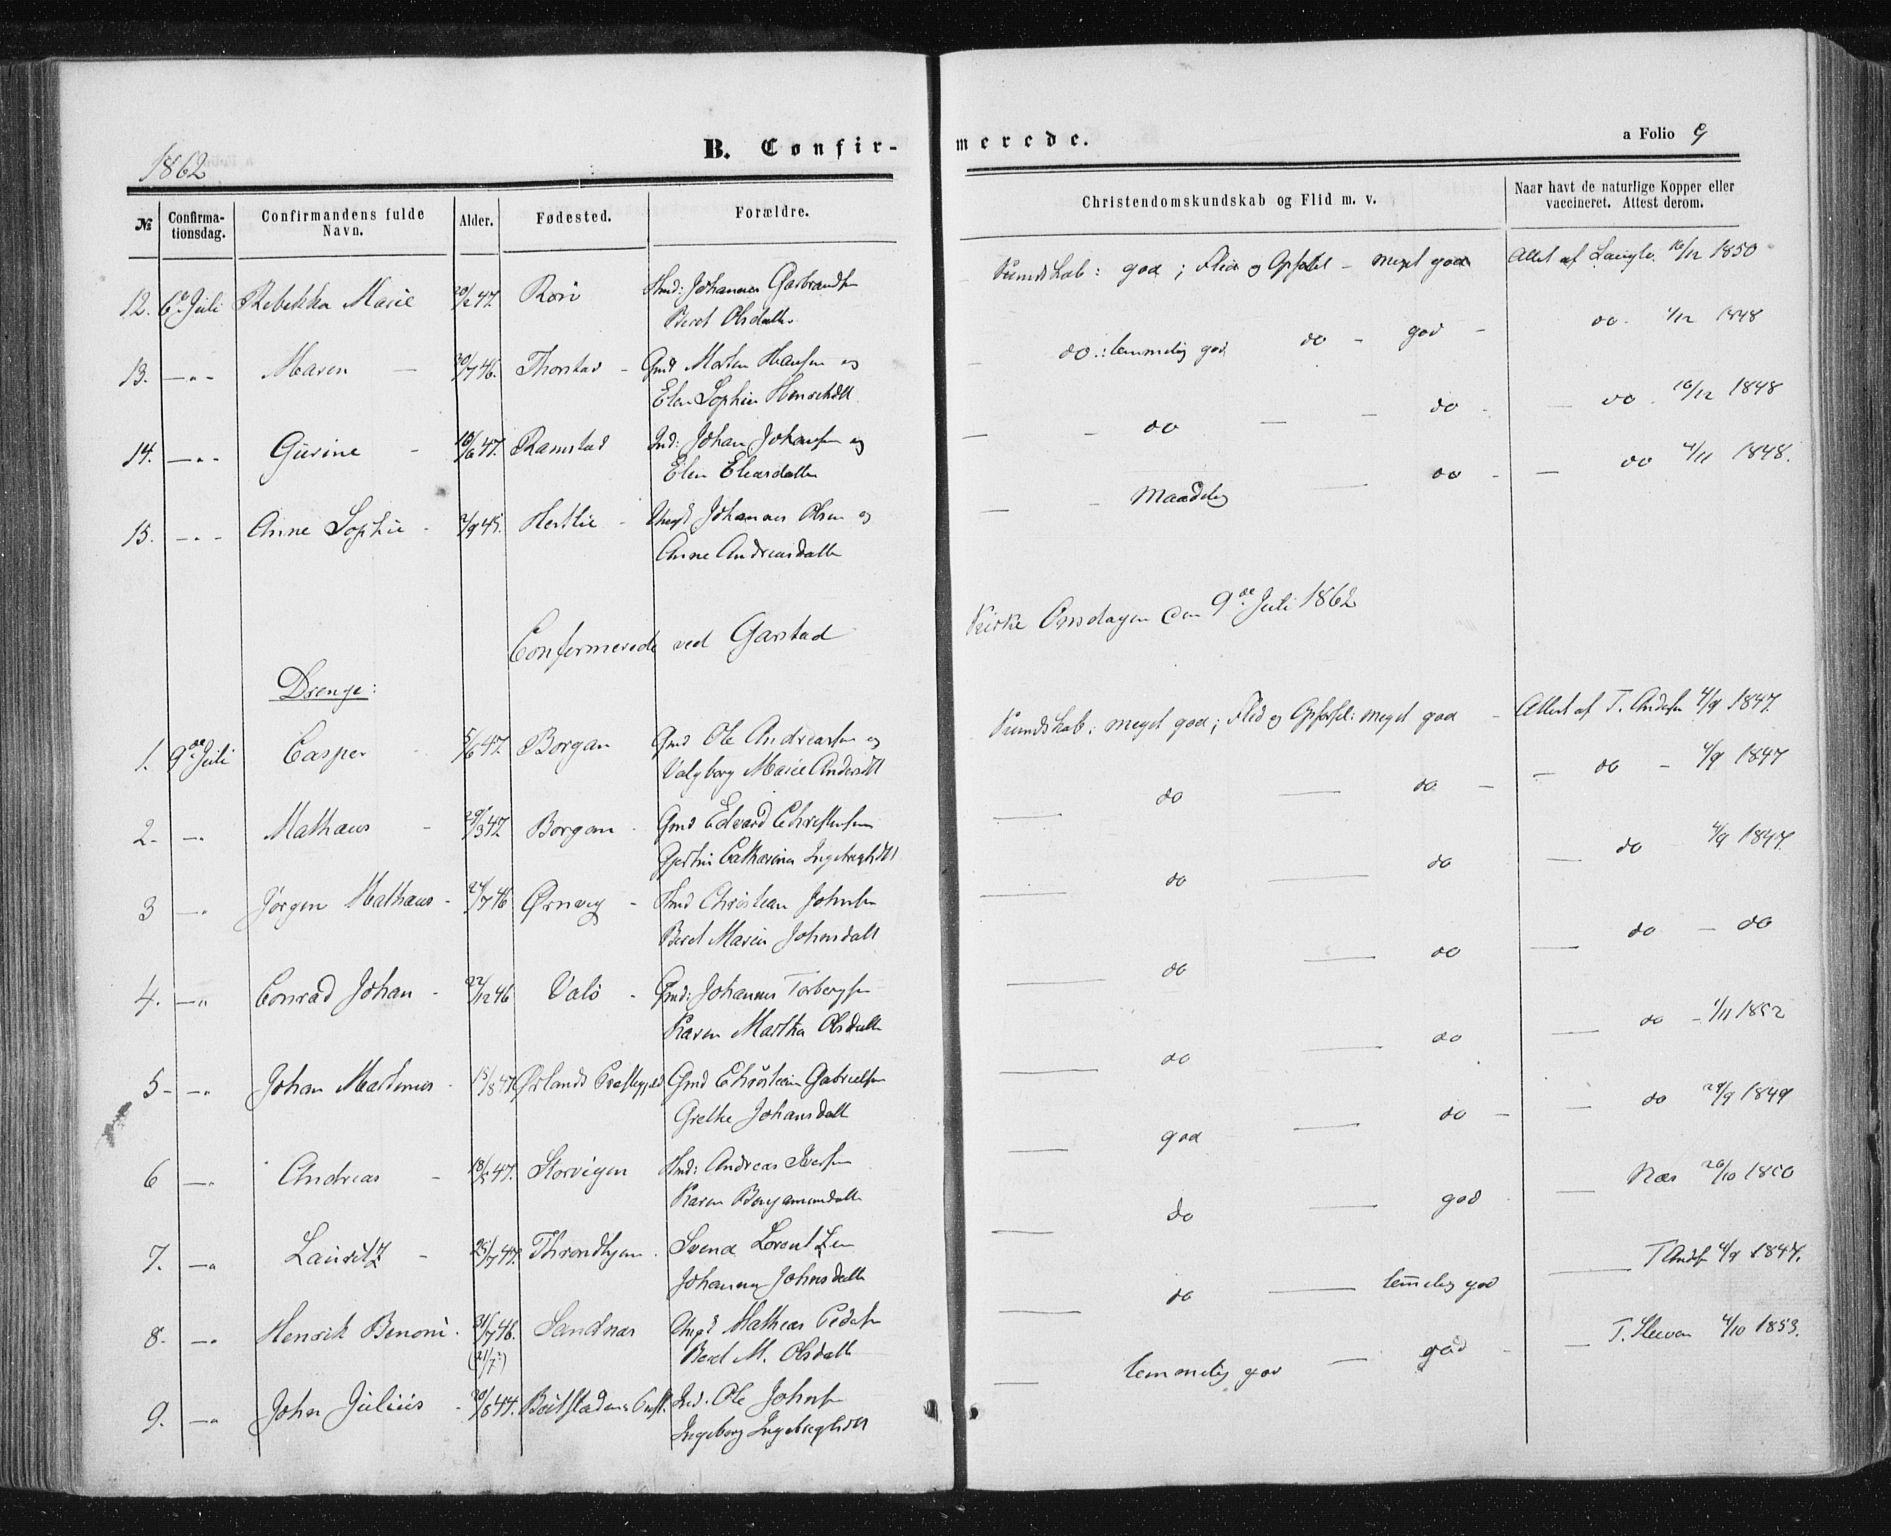 1862
B. Confir-
merede.
a Folio 9
№ Confirma-tionsdag. Confirmandens fulde Navn. Alder. Fødested. Forældre. Christendomskundskab og Flid m. v. Naar havt de naturlige Kopper eller vaccineret. Attest derom.
12. 6te Juli Rebekka Marie 20/2 47. Rörö Hmd: Johannes Garbrandsen Kundskab: god; Flid og Opførsel - meget god Attest af 16/12 1850
Beret Olsdatter
13. — " - Maren — 30/7 46. Thorstad - Gmd Morten Hansen og — do.: temmelig god do - god - do. 4/12 1848
Elen Sophie Henrichsdtt
14. — " - Gurine - 10/6 47. Ramstad Ind: Johan Johansen og — - do — - do - — do. 16/12 1848
Elen Eliasdatter
15. — " - Anne Sophie - 2/9 45. Hestlie - Ungk Johannes Olsen og — - Maadelig — do - — do 4/11 1848.
Anne Andreasdatter
Confirmerede ved Garstad
Kirke Onsdagen den 9de Juli 1862
Drenge:
1. 9de Juli Casper - 5/6 47. Borgan Gmd Ole Andreassen og Kundskab: meget god; Flid og Opførsel: meget god - Attest af T. Andersen 4/9 1847.
Valgborg Marie Andersdtt
2. — " Mathæus - 29/3 47 Borgan - Gmd Edvard Christensen — do — do - — do - 4/9 1847
Catharina Ingebregtsdtt
3 — " Jørgen Mathæus - 24/7 46 Ørnvig - Hmd Christian Johnsen — do — do — do - 4/9 1847.
Beret Maria Johnsdatt
4. — " Conrad Johan - 22/12 46 Valö - Gmd: Johannes Torbergsen — do — do — do - do
Karen Martha Olsdatter
5 - — " Johan Martinus - 15/8 47 Ørlands Præstegjeld Gmd Christian Gabrielsen — do — do — do - 1/11 1852
Grethe Johansdatt
6 — " Andreas - 18/5 47. Storvigen Hmd: Andreas Iversen — god — do - — do 29/9 1849
Karen Benjaminsdatter
7. — " Lauritz - 25/7 47. Throndhjem . Svend Lorentzen — do — god — Næs 26/10 1850
Johanna Johnsdatter
8. — " Henrik Benoni . 31/7 46. (21/7?) Sandnæs Ungk Mathias Pedersen — do — temmelig god — T Ands 4/9 1847.
Beret M. Olsdatter
9. — " John Julius - 20/8 44. Beitstadens Præst. Ind. Ole Johnsen — temmelig god — god - — 4/10 1853.
Ingeborg Ingebregtsdtt